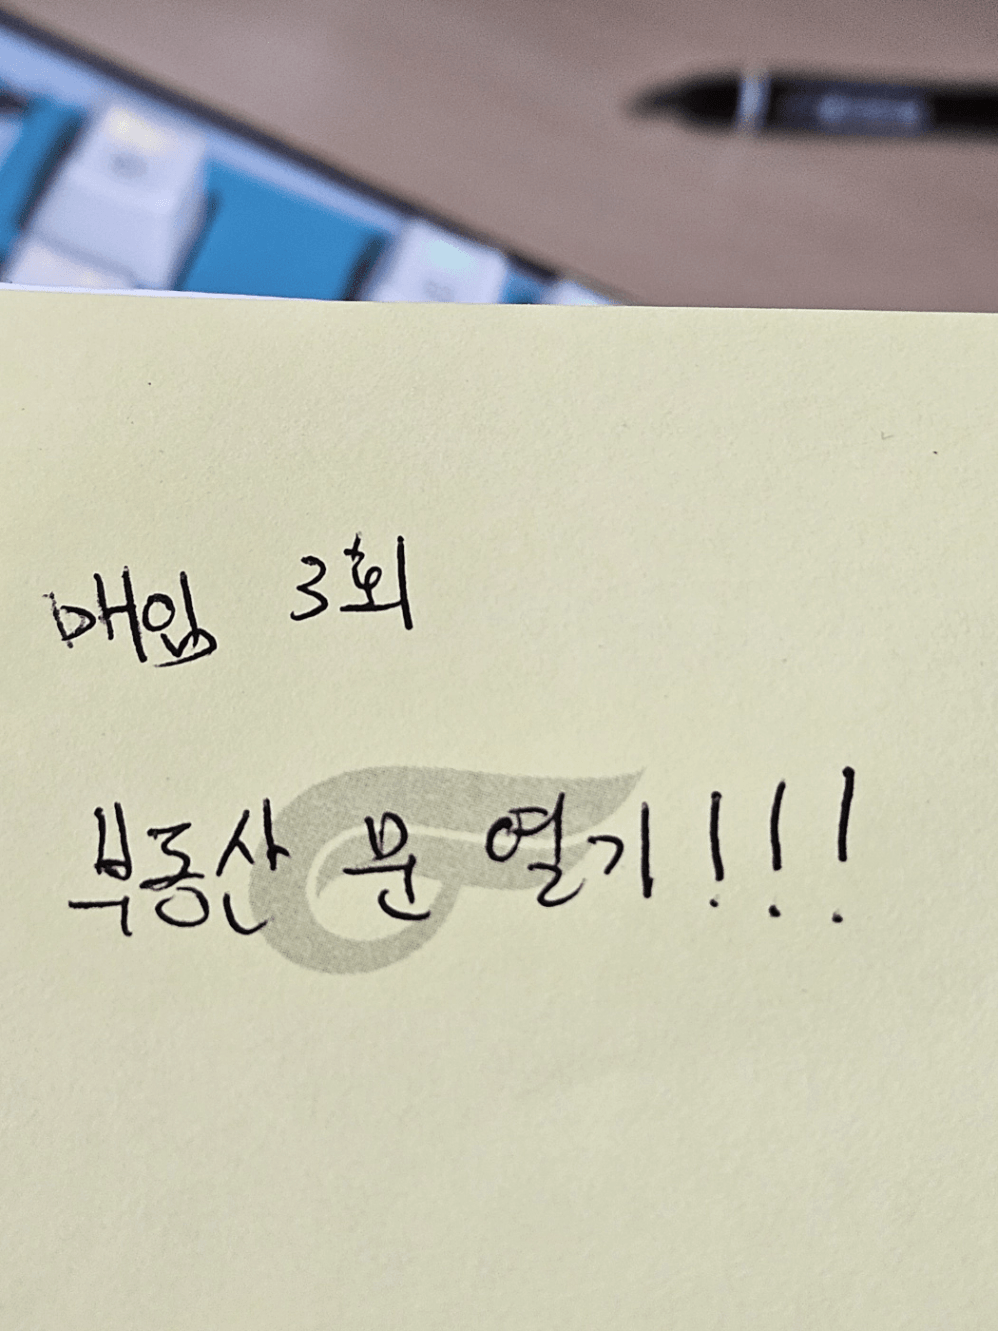 매입 3회
부동산 문 열기!!!